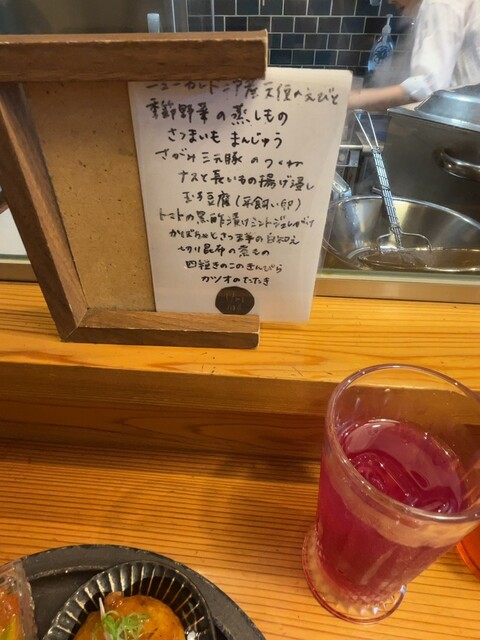 ニューカレドニア産天使のえびと
季節野菜の蒸しもの
さつまいもまんじゅう
さがみ三元豚のつくね
ナスと長いもの揚げ浸し
玉子豆腐(平飼い卵)
トマトの黒酢漬けミントジュレがけ
かぼちゃとさつま芋の白和え
切り昆布の煮もの
四種きのこのきんぴら
カツオのたたき